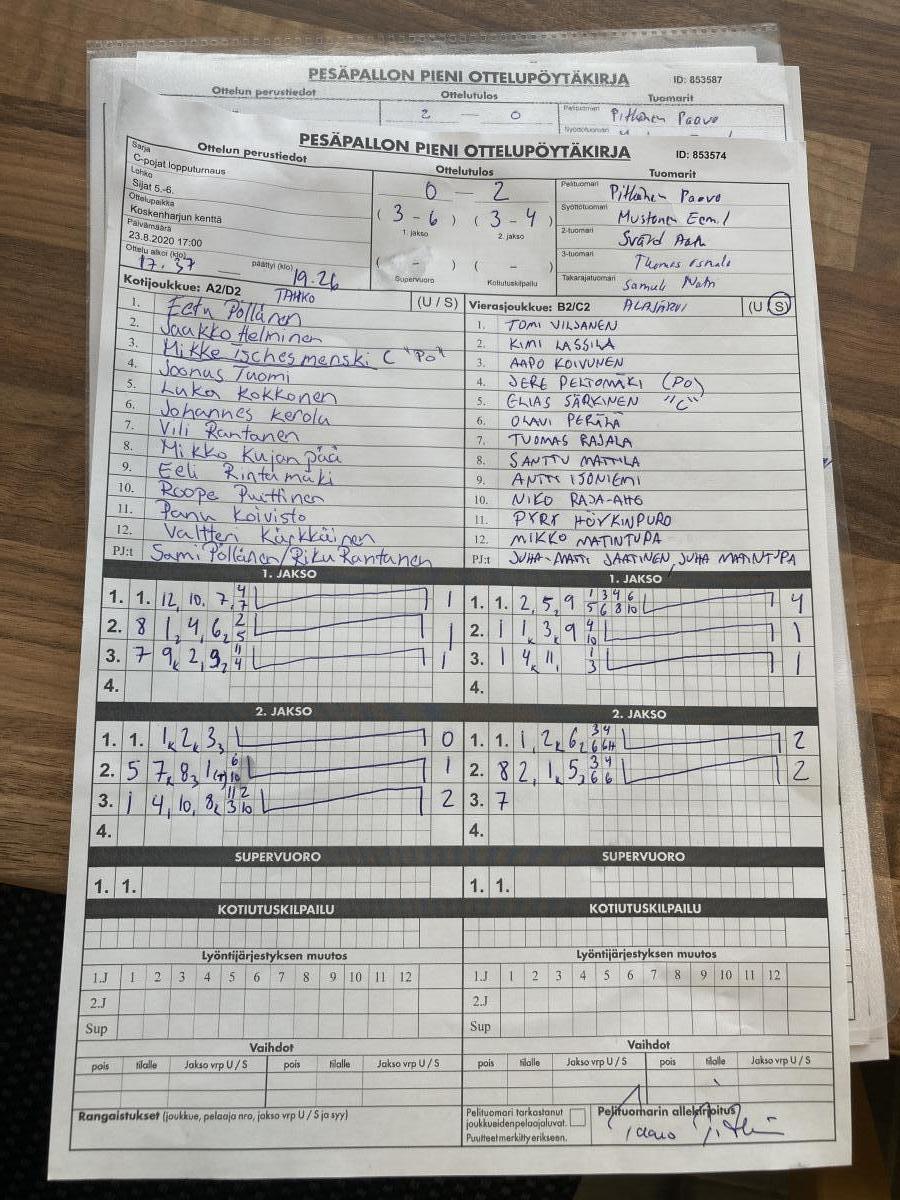 PESÄPALLON PIENI OTTELUPÖYTÄKIRJA ID: 853587
Ottelun perustiedot Ottelutulos Tuomarit
2 — 0 Pelituomari Pitkänen Paavo
Syöttötuomari
PESÄPALLON PIENI OTTELUPÖYTÄKIRJA ID: 853574
Sarja Ottelun perustiedot Ottelutulos Tuomarit
C-pojat lopputurnaus
0 — 2
Pelituomari Pitkänen Paavo
Lohko
Sijat 5.-6.
(3 - 6) (3 - 4)
Syöttötuomari Mustonen Eemil
Ottelupaikka
Koskenharjun kenttä
1. jakso 2. jakso
2-tuomari Svärd
Päivämäärä
23.8.2020 17:00
( - ) ( - )
3-tuomari Thomas
Ottelu alkoi (klo) 17.37 päättyi (klo) 19.26
Supervuoro Kotiutuskilpailu
Takarajatuomari Samuli
Kotijoukkue: A2/D2 TAHKO (U / S)
1. Eetu Pöllänen
2. Jaakko Helminen
3. Mikke Tschesmenski C "Po"
4. Joonus Tuomi
5. Luka Kokkonen
6. Johannes Kerola
7. Vili Rantanen
8. Mikko Kujanpää
9. Eeli Rintamäki
10. Roope Puittinen
11. Panu Koivisto
12. Valtteri Kärkkäinen
PJ:t Sami Pöllänen/Riku Rantanen
Vierasjoukkue: B2/C2 ALAJÄRVI (U / S)
1. TOMI VILJANEN
2. KIMI LASSILA
3. AAPO KOIVUNEN
4. JERE PELTOMÄKI (PO)
5. ELIAS SÄRKINEN "C"
6. OLAVI PERÄLÄ
7. TUOMAS RAJALA
8. SANTTU MATTILA
9. ANTTI ISONIEMI
10. NIKO RAJA-AHO
11. PYRY HÖYKINPURO
12. MIKKO MATINTUPA
PJ:t JUHA-MATTI JAATINEN, JUHA MATINTUPA
1. JAKSO
1. 1. 12, 10, 7, 4 7 1
2. 8 1, 4, 6, 2 5 1
3. 7 9k 2, 9, 11 4 1
4.
1. JAKSO
1. 1. 2, 5, 9 1 3 4 6 5 6 8 10 4
2. 1 1k 3k 9 4 10 1
3. 1 4k 11, 1 3 1
4.
2. JAKSO
1. 1. 1k 2k 3, 0
2. 5 7k 8, 6 10 1
3. 1 4, 10, 8k 11 2 3 10 2
4.
2. JAKSO
1. 1. 1, 2k 6, 3 4 2
2. 8 2, 1k 5, 3 4 6 6 2
3. 7
4.
SUPERVUORO SUPERVUORO
1. 1. 1. 1.
KOTIUTUSKILPAILU KOTIUTUSKILPAILU
Lyöntijärjestyksen muutos Lyöntijärjestyksen muutos
1.J 1 2 3 4 5 6 7 8 9 10 11 12 1.J 1 2 3 4 5 6 7 8 9 10 11 12
2.J 2.J
Sup Sup
Vaihdot Vaihdot
pois tilalle Jakso vrp U / S pois tilalle Jakso vrp U / S pois tilalle Jakso vrp U / S pois tilalle Jakso vrp U / S
Rangaistukset (joukkue, pelaaja nro, jakso vrp U / S ja syy)
Pelituomari tarkastanut
joukkueiden pelaajaluvat.
Puutteet merkitty erikseen.
Pelituomarin allekirjoitus